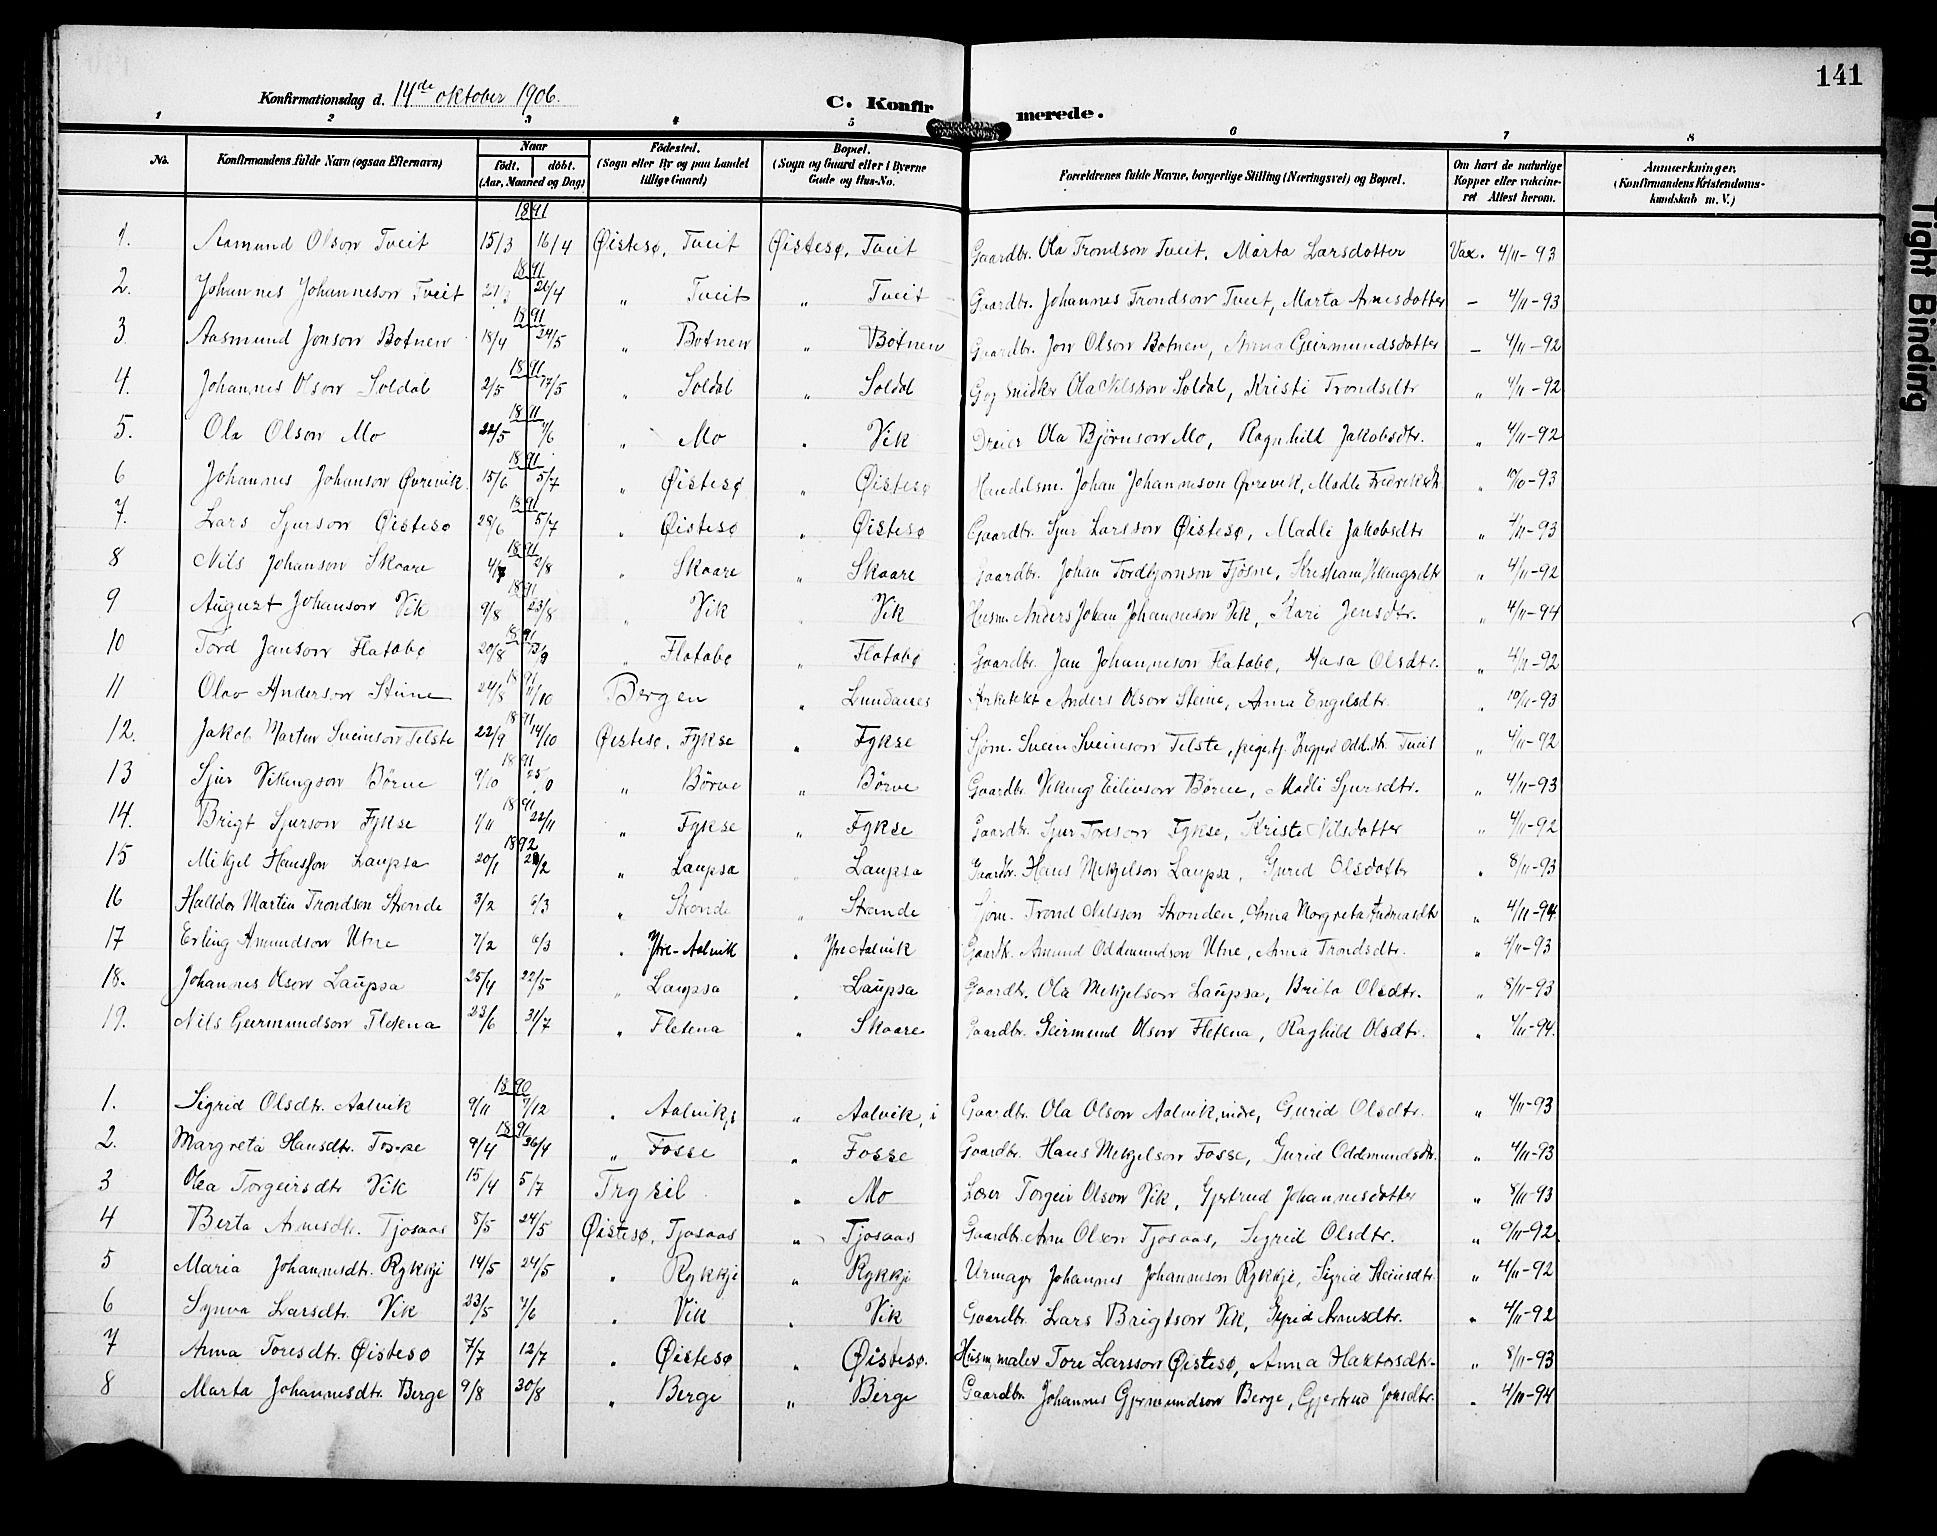 141
Konfirmationsdag d. 14de oktober 1906.
C. Konfirmerede.
1 2 3 4 5 6 7 8
No. Konfirmandens fulde Navn (ogsaa Efternavn) Naar født. døbt. (Aar, Maaned og Dag) Fødested. (Sogn eller By og paa Landet tillige Gaard) Bopæl. (Sogn og Gaard eller i Byerne Gade og Hus-No. Forældrenes fulde Navne, borgerlige Stilling (Næringsvei) og Bopæl. Om havt de naturlige Kopper eller vaccineret Attest herom. Anmærkninger, (Konfirmandens Kristendomskundskab m. V.)
1891
1. Aamund Olson Tveit 15/3 16/4 Øistesø, Tveit Øistesø, Tveit Gaardbr. Ola Trondson Tveit, Marta Larsdotter Vax. 4/11-93
1891
2. Johannes Johanneson Tveit 26/4 " Tveit " Tveit Gaardbr. Johannes Trondson Tveit, Marta Arnesdotter - 4/11-93
1891
3 Aasmund Jonson Botnen 18/4 24/5 " Botnen " Botnen Gaardbr. Jon Olson Botnen, Anna Geirmundsdotter - 4/11-92
1891
4. Johannes Olson Soldal 2/5 17/5 " Soldal " Soldal G og snidker Ola Nilsson Soldal, Kristi Trondsdtr " 4/11-92
18 11
5. Ola Olson Mo 22/5 7/6 " Mo " Vik Dreier Ola Bjørnson Mo, Ragnhild Jakobsdtr. " 4/11-92
1891
6 Johannes Johanson Øvrevik 15/6 5/7 " Øistesø " Øistesø Handelsm. Johan Johanneson Øvrevik, Madli Fredriksdtr. "
1891
7. Lars Sjurson Øistesø 28/6 5/7 " Øistesø " Øistesø Gaardbr. Sjur Larsson Øistesø, Madli Jakobsdtr " 4/11-93
1891
8 Nils Johanson Skaare 4/7 2/8 " Skaare " Skaare Gaardbr. Johan Tordbjørnson Tjøsne, Vikingsdtr " 4/11-92
1891
9 August Johanson Vik 9/8 23/8 " Vik " Vik Husm. Anders Johan Johanneson Vik, Kari Jensdtr. " 4/11-94
1891
10 Tord Janson Flatabø 20/8 13/9 " Flatabø " Flatabø Gaardbr. Jan Johanneson Flatabø, Aasa Olsdtr. " 4/11-92
1891
11 Olav Anderson Steine 24/8 11/10 Bergen " Lundanes Arkitekt Anders Olson Steine, Anna Engelsdtr. " 10/11-93
1891
12. Jakob Martin Sveinson Telste 22/9 14/10 Øistesø, Fykse " Fykse Sjøm. Svein Sveinson Telste, pige tj. Oddsdtr. Tveit " 4/11-92
1891
13 Sjur Vikingson Børve 9/10 " Børve " Børve Gaardbr. Viking Eilivson Børve, Madli Sjursdtr. " 4/11-93
1891
14. Brigt Sjurson Fykse 1/11 22/11 " Fykse " Fykse Gaardbr. Sjur Toreson Fykse, Kristi Nilsdotter " 4/11-92
1892
15 Mikjel Hansson Laupsa 20/1 " Laupsa " Laupsa Gaardbr. Hans Mikjelson Laupsa, Gurid Olsdotter " 8/11-93
16 Halldor Martin Trondson Strande 3/2 6/3 " Strande " Strande Sjøm. Trond Nilsson Stranden, Anna Margreta Andreasdtr " 4/11-94
17 Erling Amundson Utne 7/2 6/3 " Ytre-Aalvik " Ytre Aalvik Gaardbr. Amund Oddmundson Utne, Anna Trondsdtr. " 4/11-93
18. Johannes Olson Laupsa 25/4 22/5 " Laupsa " Laupsa Gaardbr. Ola Mikjelson Laupsa, Brita Olsdtr. " 8/11-93
19. Nils Geirmundson Fletena 23/6 31/7 " Fletena " Skaare Gaardbr. Geirmund Olson Fletena, Raghild Olsdtr. " 4/11-94.
1890
1. Sigrid Olsdtr. Aalvik 9/11 7/12 " Aalvik, i " Aalvik, i Gaardbr. Ola Olson Aalvik, indre, Gurid Olsdtr. " 4/11-93
1891
2. Margreta Hansdtr. Fosse 9/4 26/4 " Fosse " Fosse Gaardbr. Hans Mikjelson Fosse, Gurid Oddmundsdtr. " 4/11-93
3 Olea Torgeirsdtr Vik 15/4 5/7 Trysil " Mo Lærer Torgeir Olson Vik, Gjertrud Johannesdotter " 8/11-93
4 Berta Arnesdtr. Tjosaas 8/5 24/5 Øistesø, Tjosaas " Tjosaas Gaardbr. Arne Olson Tjosaas, Sigrid Olsdtr. " 9/11-92
5 Maria Johannesdtr. Rykkji 14/5 24/5 " Rykkji " Rykkji Urmager Johannes Johanneson Rykkji, Sigrid Steinsdtr. " 4/11-92
6 Synva Larsdtr. Vik 23/5 7/6 " Vik " Vik Gaardbr. Lars Brigtson Vik, Gyrid Arnesdtr. " 4/11-92
7 Anna Toresdtr. Øistesø 7/7 12/7 " Øistesø " Øistesø. Husm, maler Tore Larsson Øistesø, Anna Haktorsdtr. " 8/11-93
8 Marta Johannesdtr. Berge 9/8 30/8 " Berge " Berge Gaardbr. Johannes Gjermundson Berge, Gjertrud Jonsdtr. " 4/11-94
Tight Binding